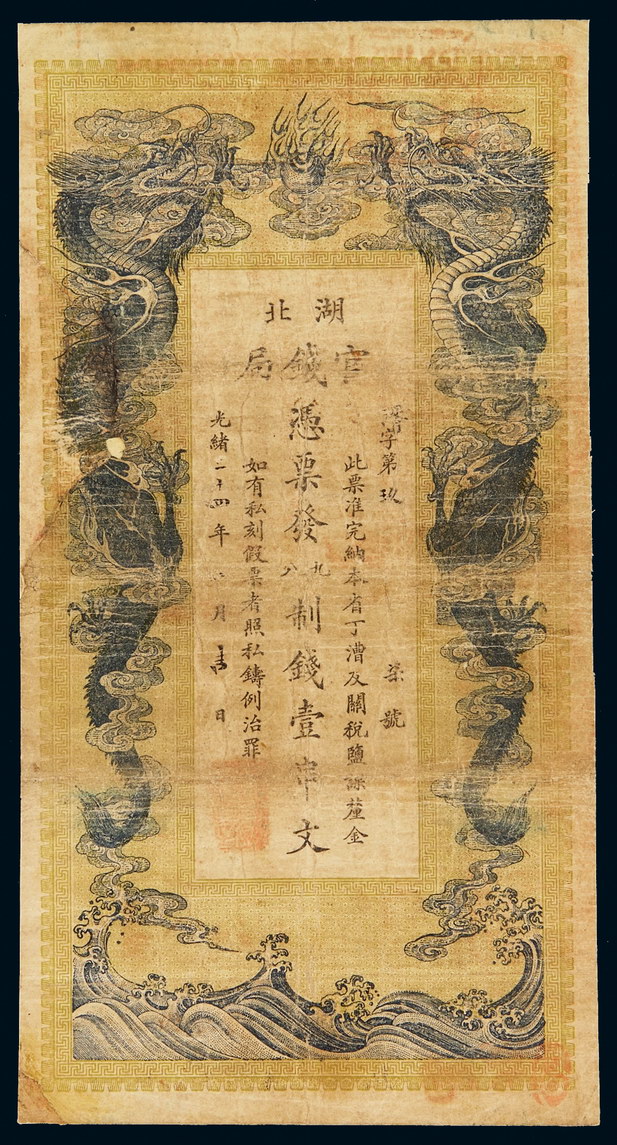 湖北
官錢局
字第玖
柒號
此票准完納本省丁漕及關稅鹽課釐金
憑票發九八制錢壹串文
如有私刻假票者照私鑄例治罪
光緒二十四年
月
日